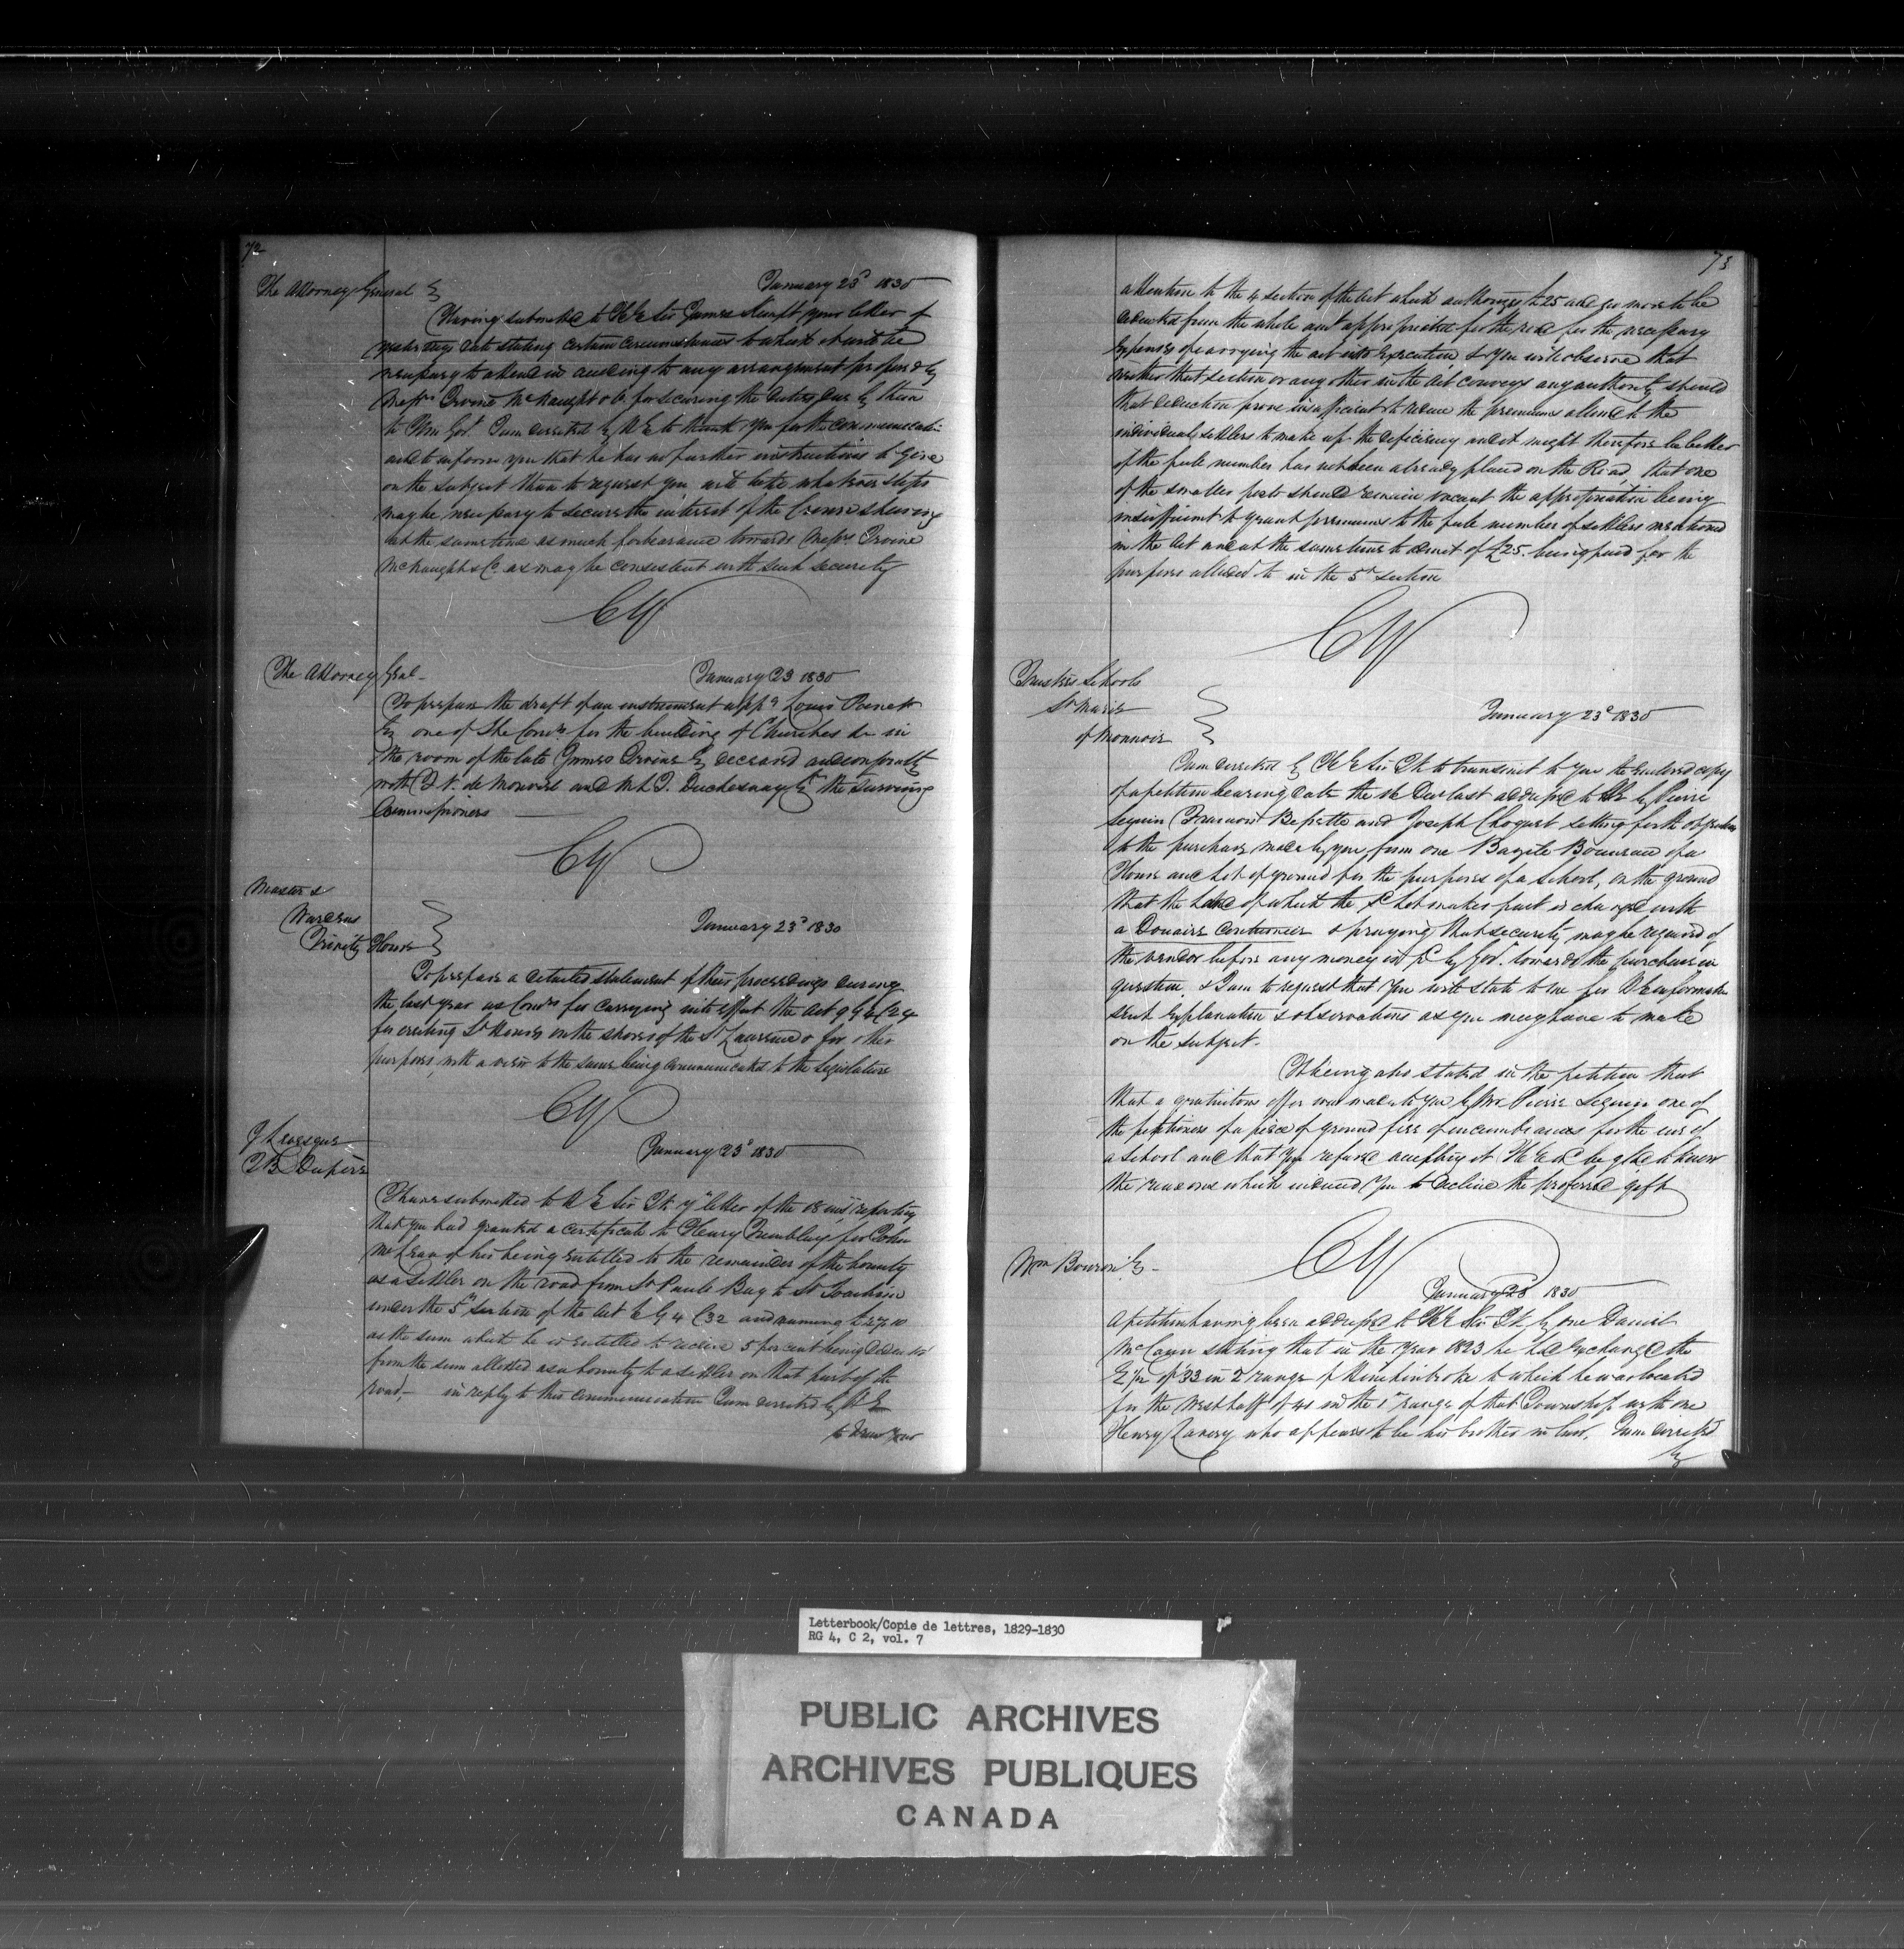 72
The Attorney General
January 23d 1830
Having submitted to H E Sir James Kempt your letter of
yesterdays date stating certain circumstances to which it will be
necessary to attend in acceding to any arrangement proposed by
Messrs Irvine McNaught & Co for securing the duties due by them
to Govt. I am directed by H E to thank you for the communication
and to inform you that he has no further instructions to give
on the subject than to request you will take whatever steps
may be necessary to secure the interest of the Crown shewing
at the same time as much forbearance towards Messrs Irvine
McNaught & Co. as may be consistent with such security
CY
The Attorney Genl
January 23 1830
To prepare the draft of an instrument appg Louis Panet
Esq one of the Comrs for the building of Churches &c in
the room of the late James Irvine Esq deceased and conjointly
with and M L J. Duchesnay Esqr the surviving
Commissioners
CY
Master &
Wardens
Trinity House
January 23d 1830
To prepare a detailed statement of their proceedings during
the last year as Comrs for carrying into effect the Act 9 G 4 C 24
for erecting Lt Houses on the shores of the St Lawrence & for other
purposes, with a view to the same being communicated to the Legislature
CY
January 23d 1830
I have submitted to H E Sir Jk yr letter of the 18 inst reporting
that you had granted a certificate to Henry Tremblay for John
McLean of his being entitled to the remainder of the bounty
as a settler on the road from St Pauls Bay to St Joachim
under the 5th section of the Act 9 G 4 C 32 and naming
as the sum which he is entitled to receive 5 per cent being deducted
from the sum allotted as a bounty to a settler on that part of the
road,- in reply to this communication I am directed by H E
to draw your
73
attention to the 4 section of the act which authorizes £25 and no more to be
deducted from the whole amt appropriated for the road for the necessary
expenses of carrying the act into execution, & you will observe that
neither that section or any other in the Act conveys any authority should
that deduction prove insufficient to reduce the premiums allowed to the
individual settlers to make up the deficiency and it might therefore be better
if the full number has not been already placed on the Road, that one
of the smaller posts should remain vacant the appropriation being
insufficient to grant premiums to the full number of settlers mentioned
in the Act and at the same time to admit of £25. being paid for the
purposes alluded to in the 5th section
CY
Trustees Schools
St Marie
of Monnoir
January 23d 1830
I am directed by H E Sir Jk to transmit to you the enclosed copy
of a petition bearing date the Dec last addressed to HE by Pierre
Seguin and Joseph setting forth objections
to the purchase made by you from one Bazile of a
House and Lot of ground for the purposes of a school, on the ground
that the land of which the sd Lot makes part is charged with
a Douaire Coutumier & praying that security may be required of
the vendor before any money is pd by Govt. towards the purchase in
question & I am to request that you will state to me for H E information
such explanation & observations as you may have to make
on the subject.
It being also stated in the petition that
that a gratuitous offer was made to you by Mr Pierre Seguin one of
the petitioners of a piece of ground free of incumbrances for the use of
a school and that you refused accepting it H E wd be glad to know
the reasons which induced you to decline the proffered gift
CY
Wm Bowron Esq -
January 23 1830
A petition having been addressed to H E Sir Jk by one Daniel
McCann stating that in the year 1823 he had exchanged the
E 1/2 of 33 in 2 range of Hinchinbroke to which he was located
for the West half of 41 in the 1st range of that Township with one
Henry who appears to be his brother in law. I am directed
by
Letterbook/Copie de lettres, 1829-1830
RG 4, C 2, vol. 7
PUBLIC ARCHIVES
ARCHIVES PUBLIQUES
CANADA